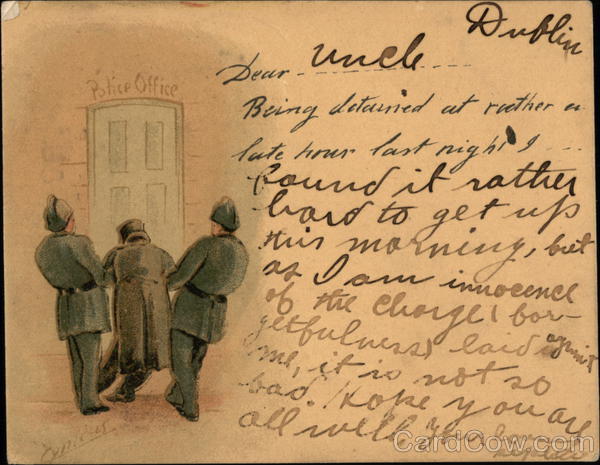 Dublin
Police Office
Dear Uncle
Being detained at rather a
late hour last night I
found it rather
hard to get up
this morning, but
as I am innocence
of the charge (for-
getfulness) laid against
me, it is not so
bad. Hope you are
all well
CardCow.com